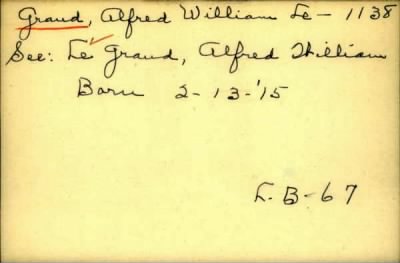 Grand, Alfred William Le - 1138
See: Le Grand, Alfred William
Born 2-13-'15
L.B-67